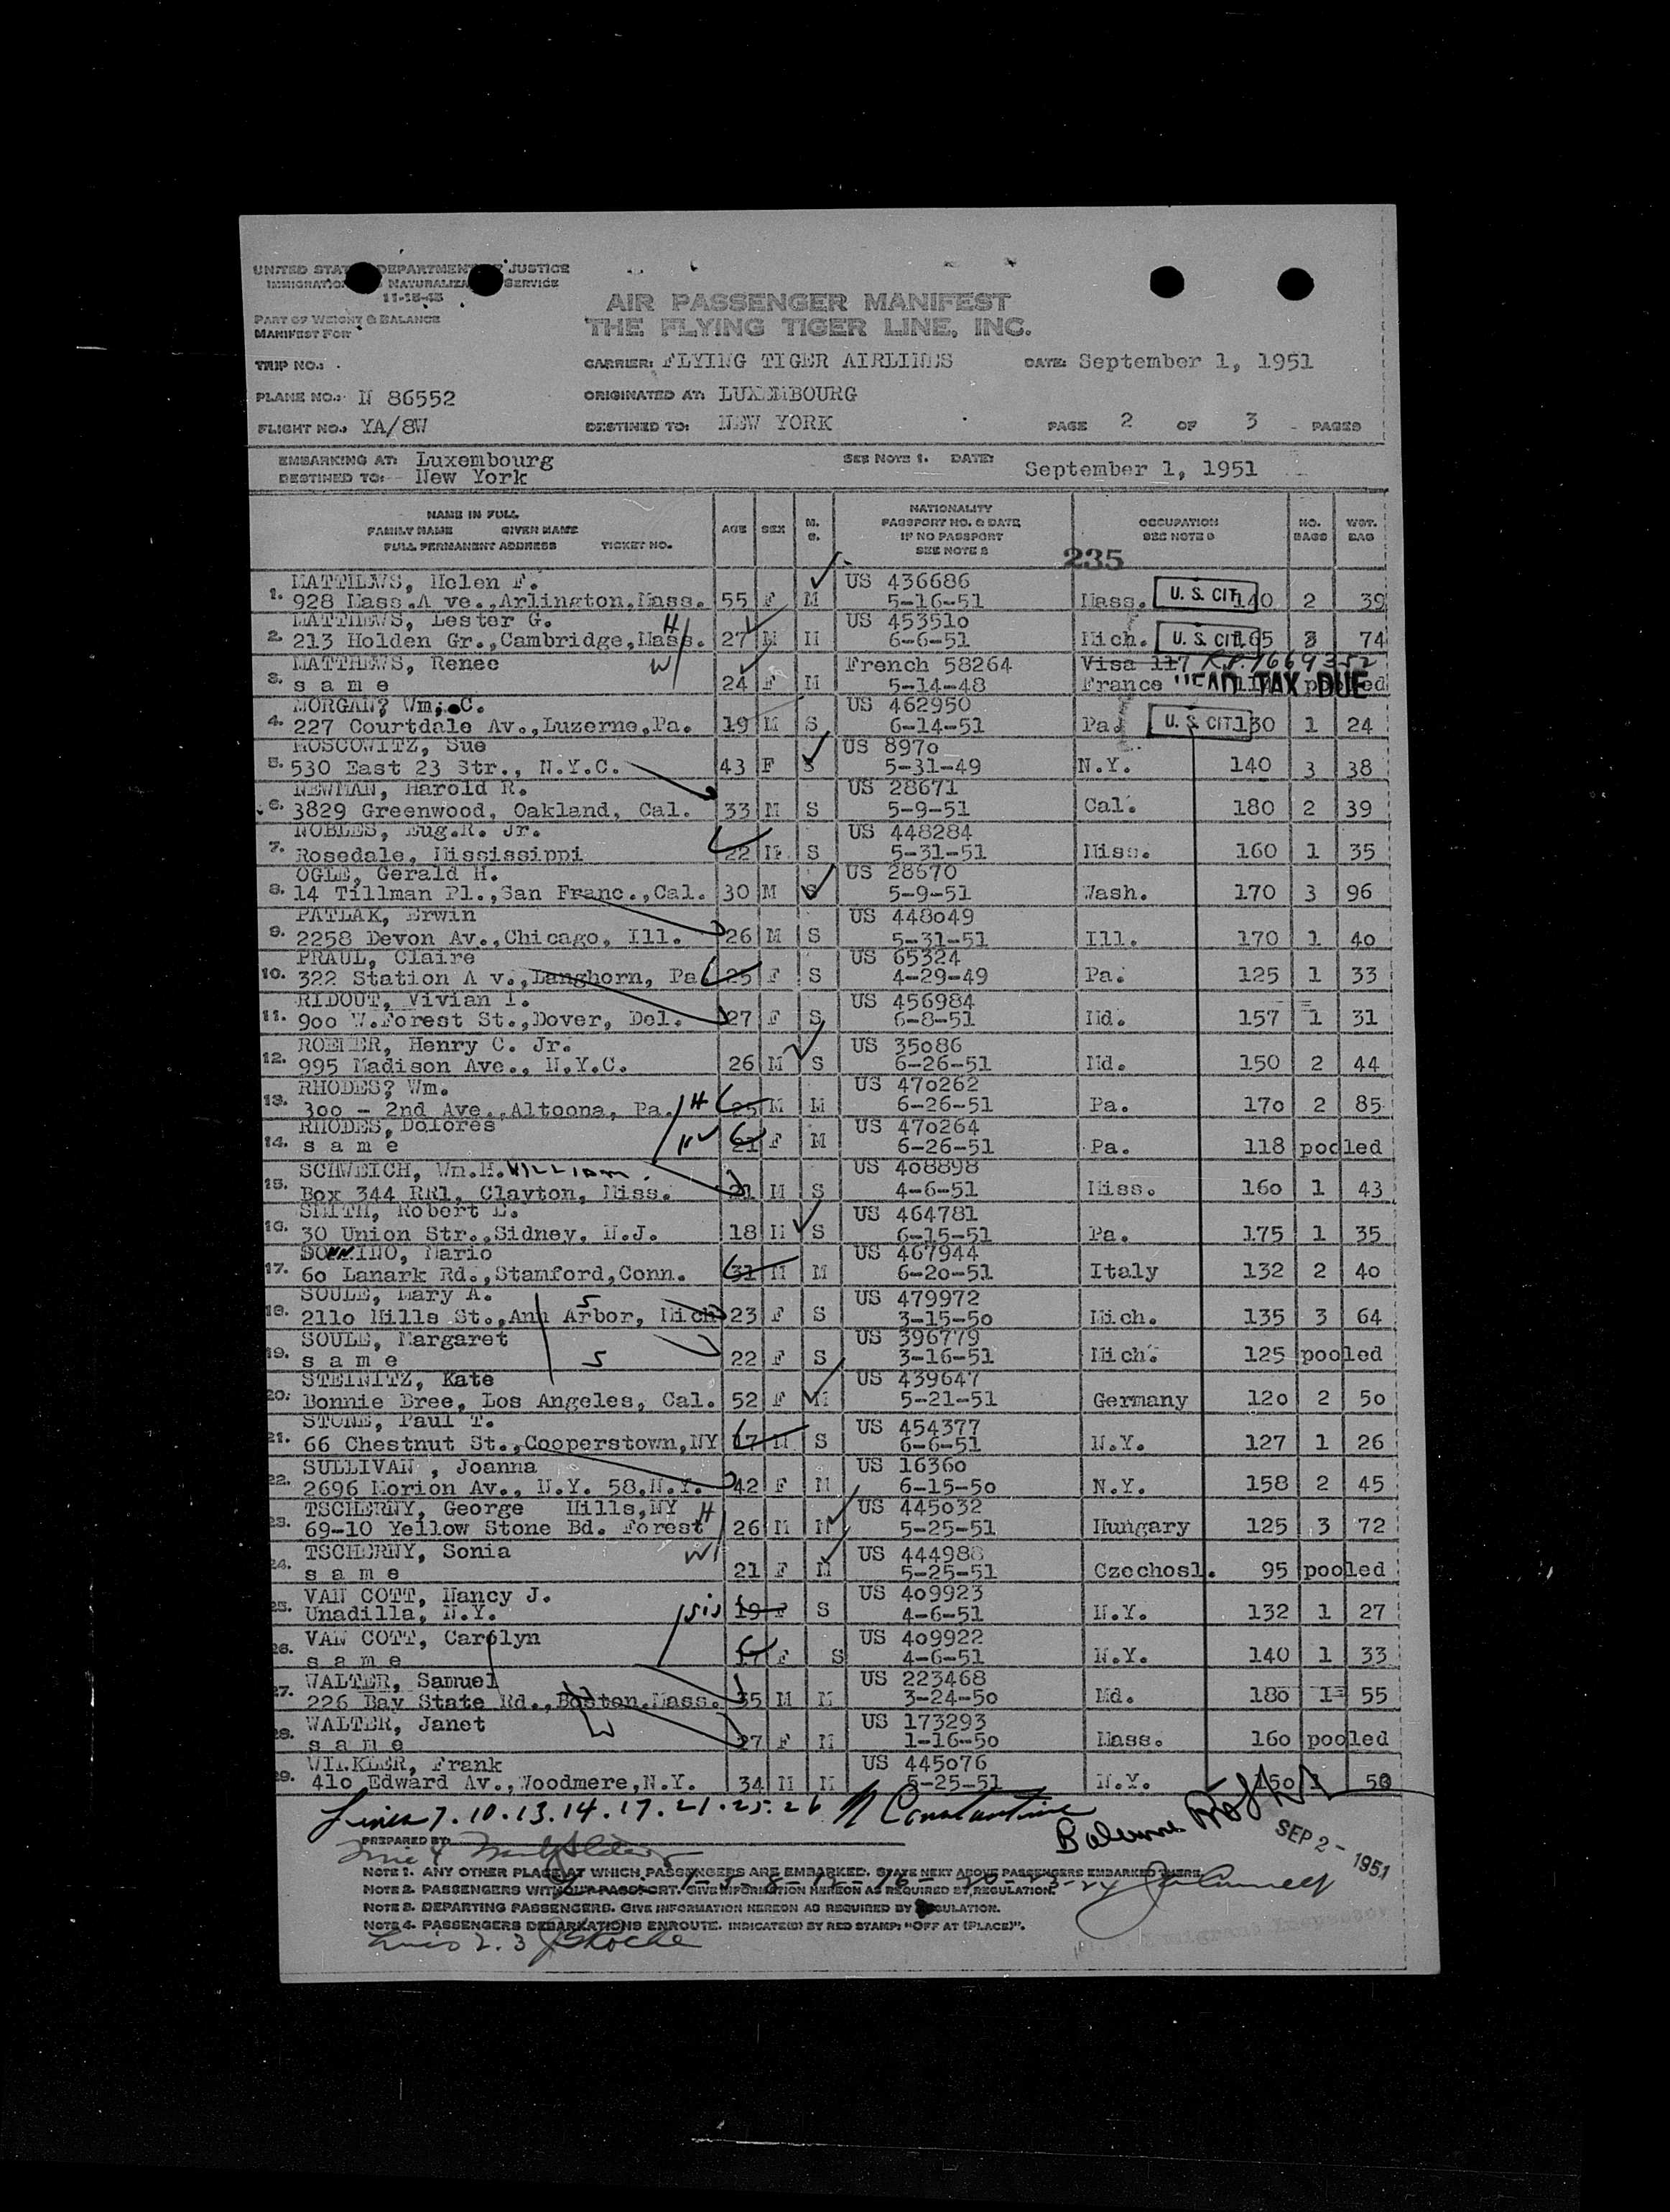 UNITED STATES DEPARTMENT OF JUSTICE
IMMIGRATION NATURALIZATION SERVICE
11-15-45
PART OF WEIGHT & BALANCE
MANIFEST FOR
AIR PASSENGER MANIFEST
THE FLYING TIGER LINE, INC.
TRIP NO.: CARRIER: FLYING TIGER AIRLINES DATE: September 1, 1951
PLANE NO.: N 86552 ORIGINATED AT: LUXEMBOURG
FLIGHT NO.: YA/8W DESTINED TO: NEW YORK PAGE 2 OF 3 PAGES
EMBARKING AT: Luxembourg SEE NOTE 1. DATE: September 1, 1951
DESTINED TO: New York
NAME IN FULL
FAMILY NAME GIVEN NAME
FULL PERMANENT ADDRESS TICKET NO.
AGE SEX M. S.
NATIONALITY
PASSPORT NO. & DATE
IF NO PASSPORT
SEE NOTE 2
OCCUPATION
SEE NOTE 3
NO. BAGS
WGT. BAG
235
MATTHEWS, Helen F. US 436686
1. 928 Mass.A ve.,Arlington,Mass. 55 F M 5-16-51 Mass. U. S. CIT 140 2 39
MATTHEWS, Lester G. H US 453510
2. 213 Holden Gr.,Cambridge,Mass. 27 M M 6-6-51 Mich. U. S. CIT 165 3 74
MATTHEWS, Renee W French 58264 Visa 117 R.P. 1669352
3. s a m e 24 F M 5-14-48 France HEAD TAX DUE pooled
MORGAN? Wm;.C. US 462950
4. 227 Courtdale Av.,Luzerne,Pa. 19 M S 6-14-51 Pa. U. S. CIT 130 1 24
MOSCOWITZ, Sue US 8970
5. 530 East 23 Str., N.Y.C. 43 F S 5-31-49 N.Y. 140 3 38
NEWMAN, Harold R. US 28671
6. 3829 Greenwood, Oakland, Cal. 33 M S 5-9-51 Cal. 180 2 39
NOBLES, Eug.R. Jr. US 448284
7. Rosedale, Mississippi 22 M S 5-31-51 Miss. 160 1 35
OGLE, Gerald H. US 28670
8. 14 Tillman Pl.,San Franc.,Cal. 30 M S 5-9-51 Wash. 170 3 96
PATLAK, Erwin US 448049
9. 2258 Devon Av.,Chicago, Ill. 26 M S 5-31-51 Ill. 170 1 40
PRAUL, Claire US 65324
10. 322 Station A v.,Langhorn, Pa 25 F S 4-29-49 Pa. 125 1 33
RIDOUT, Vivian I. US 456984
11. 900 W.Forest St.,Dover, Del. 27 F S 6-8-51 Md. 157 1 31
ROEMER, Henry C. Jr. US 35086
12. 995 Madison Ave., N.Y.C. 26 M S 6-26-51 Md. 150 2 44
RHODES? Wm. US 470262
13. 300 - 2nd Ave.,Altoona, Pa. H 25 M M 6-26-51 Pa. 170 2 85
RHODES, Dolores US 470264
14. s a m e W 21 F M 6-26-51 Pa. 118 pooled
SCHWEICH, Wm.H. WILLIAM US 408898
15. Box 344 RR1, Clayton, Miss. 21 M S 4-6-51 Miss. 160 1 43
SMITH, Robert E. US 464781
16. 30 Union Str.,Sidney, N.J. 18 M S 6-15-51 Pa. 175 1 35
SONNINO, Mario US 467944
17. 60 Lanark Rd.,Stamford,Conn. 31 M M 6-20-51 Italy 132 2 40
SOULE, Mary A. S US 479972
18. 2110 Hills St.,Ann Arbor, Mich 23 F S 3-15-50 Mich. 135 3 64
SOULE, Margaret US 396779
19. s a m e S 22 F S 3-16-51 Mich. 125 pooled
STEINITZ, Kate US 439647
20. Bonnie Bree, Los Angeles, Cal. 52 F M 5-21-51 Germany 120 2 50
STONE, Paul T. US 454377
21. 66 Chestnut St.,Cooperstown,NY 17 M S 6-6-51 N.Y. 127 1 26
SULLIVAN , Joanna US 16360
22. 2696 Morion Av., N.Y. 58,N.Y. 42 F M 6-15-50 N.Y. 158 2 45
TSCHERNY, George Hills,NY H US 445032
23. 69-10 Yellow Stone Bd. Forest 26 M M 5-25-51 Hungary 125 3 72
TSCHERNY, Sonia W US 444988
24. s a m e 21 F M 5-25-51 Czechosl. 95 pooled
VAN COTT, Nancy J. US 409923
25. Unadilla, N.Y. sis 19 F S 4-6-51 N.Y. 132 1 27
VAN COTT, Carolyn US 409922
26. s a m e 17 F S 4-6-51 N.Y. 140 1 33
WALTER, Samuel US 223468
27. 226 Bay State Rd.,Boston,Mass. 35 M M 3-24-50 Md. 180 1 55
WALTER, Janet W US 173293
28. s a m e 27 F M 1-16-50 Mass. 160 pooled
WINKLER, Frank US 445076
29. 410 Edward Av.,Woodmere,N.Y. 34 M M 5-25-51 N.Y. 150 1 50
Lines 7.10.13.14.17.21.25.26 N Constantine
Balance
SEP 2 - 1951
PREPARED BY:
NOTE 1. ANY OTHER PLACE AT WHICH PASSENGERS ARE EMBARKED. STATE NEXT ABOVE PASSENGERS EMBARKED THERE.
NOTE 2. PASSENGERS WITHOUT PASSPORT. GIVE INFORMATION HEREON AS REQUIRED BY REGULATION.
NOTE 3. DEPARTING PASSENGERS. GIVE INFORMATION HEREON AS REQUIRED BY REGULATION.
NOTE 4. PASSENGERS DEBARKATIONS ENROUTE. INDICATE(S) BY RED STAMP: "OFF AT (PLACE)".
Lines 2.3